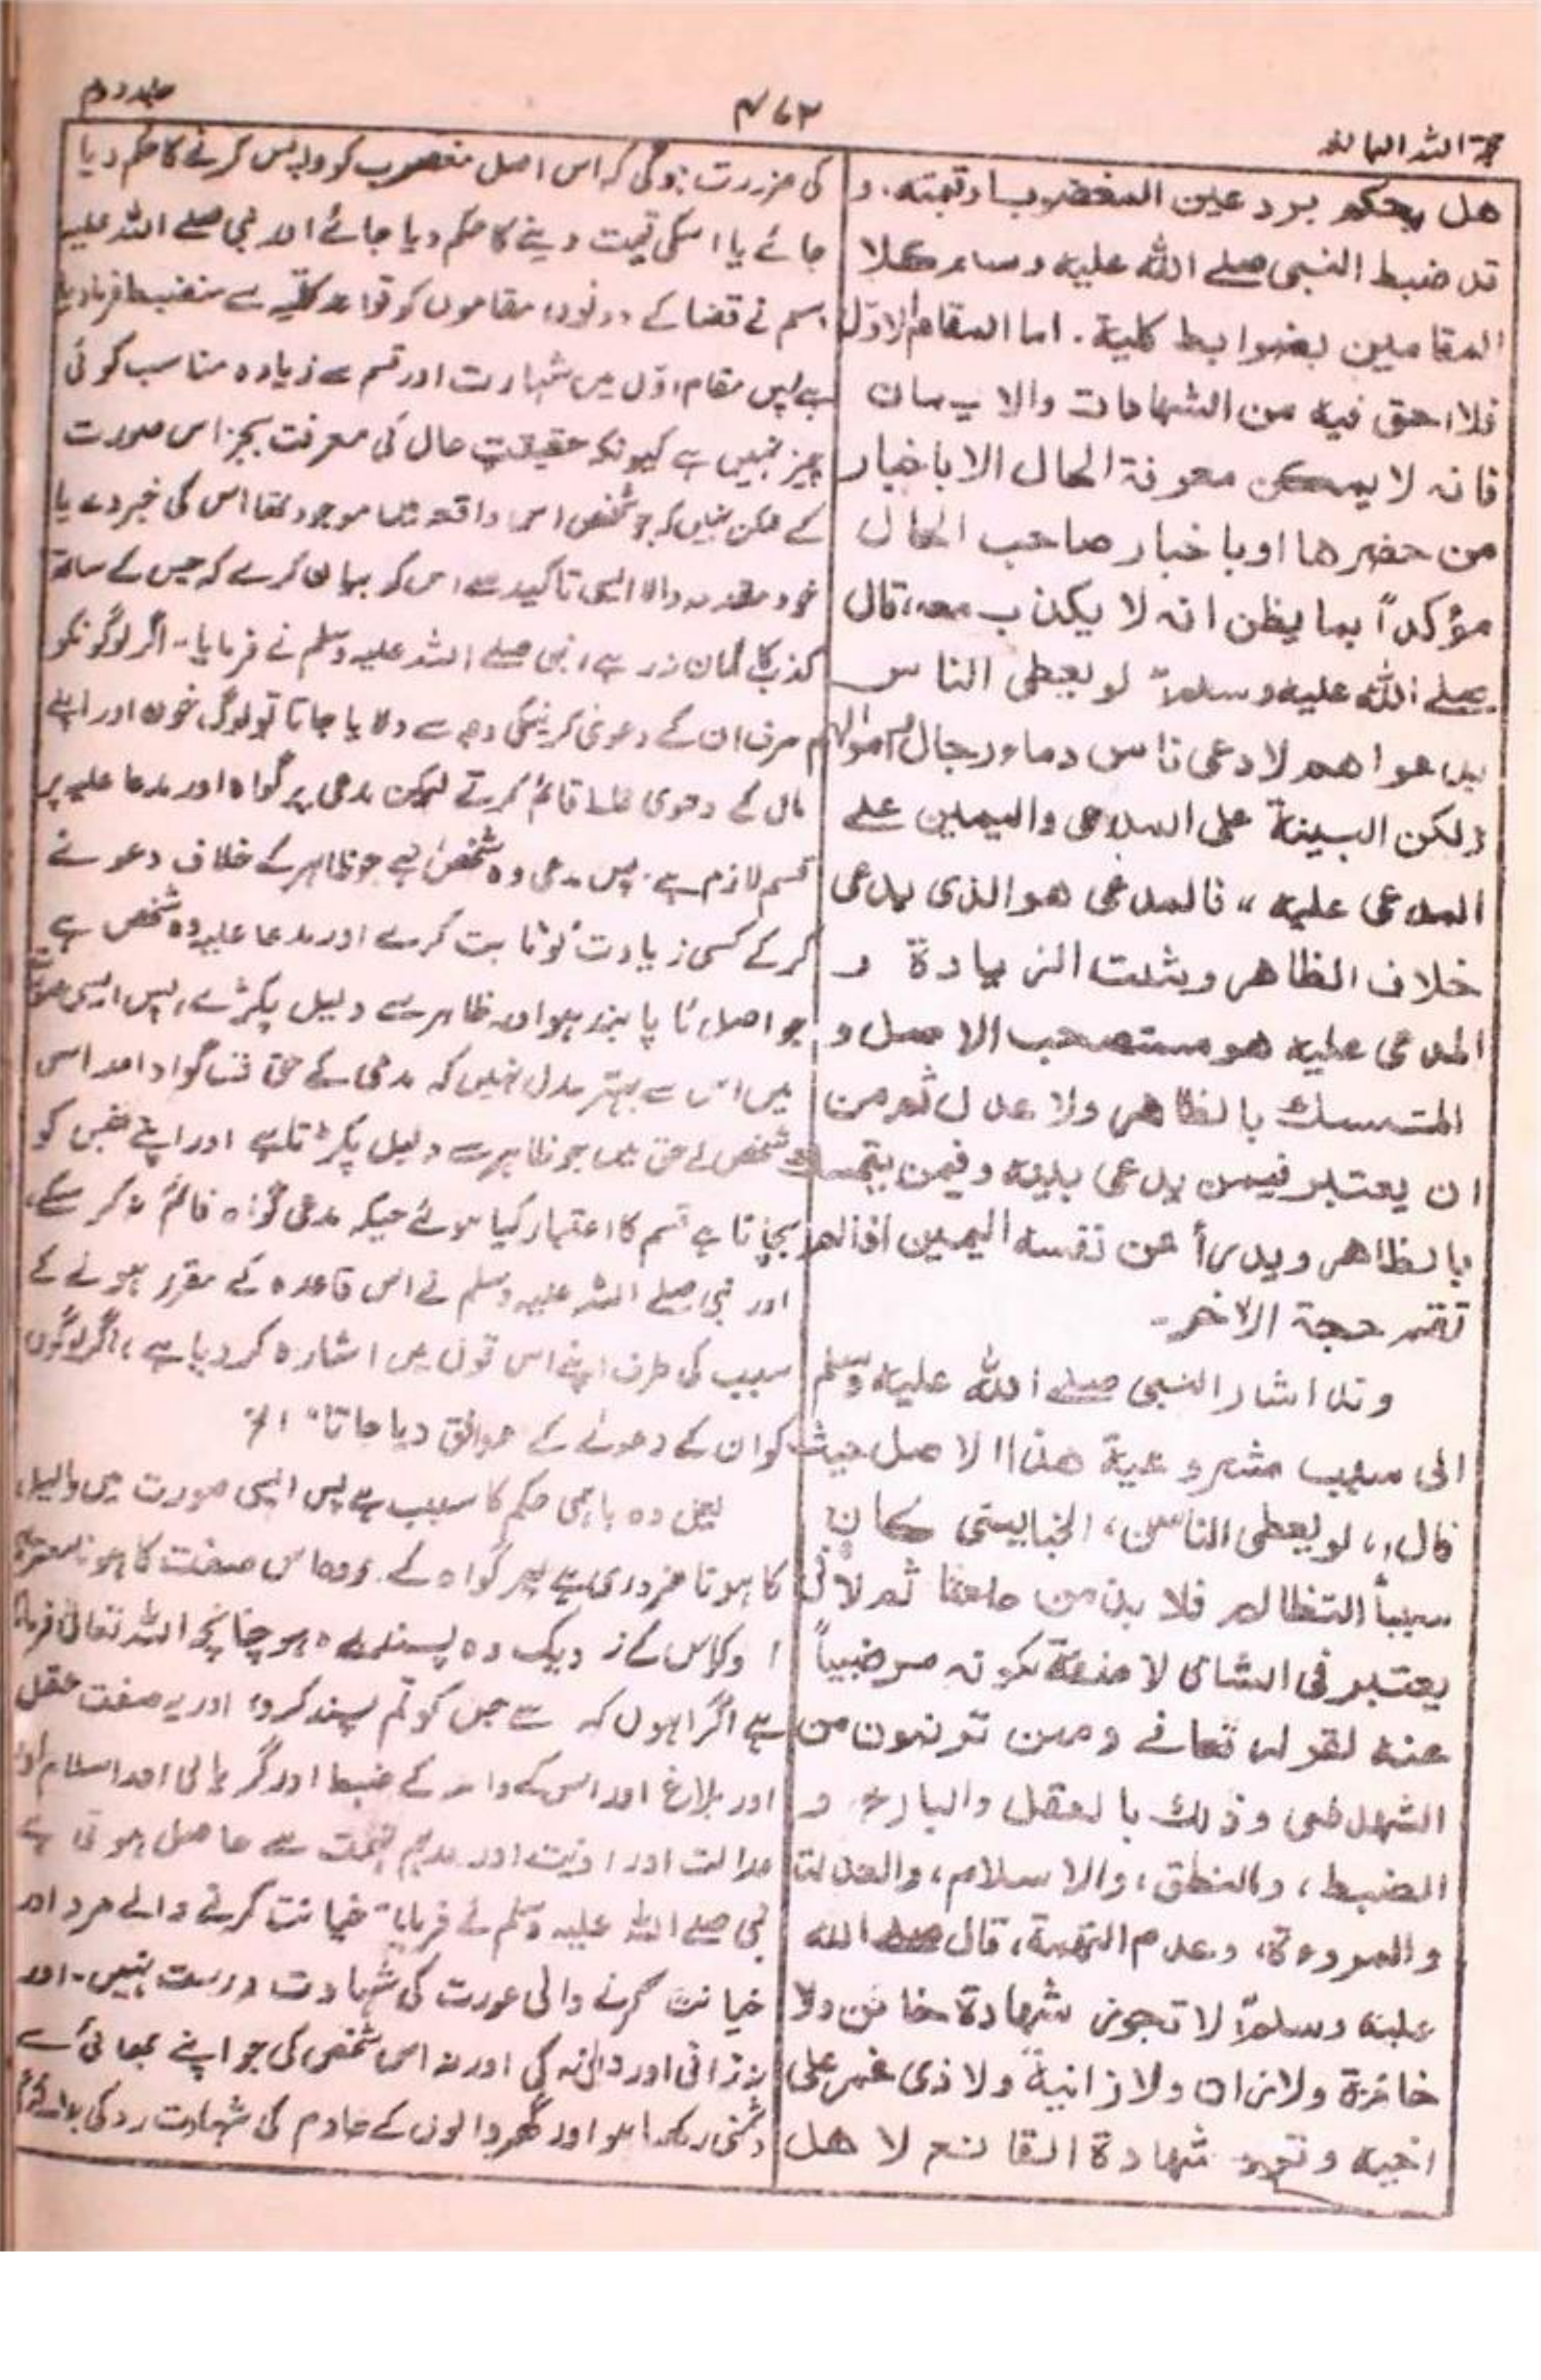 حجۃ اللہ البالغہ
۴۶۳
جلد دوم
هل يحكم برد عين المغضوب او قيمته. و
قد ضبط النبی صلے الله عليه وسلم كلا
المقامين بضوابط كلية. اما المقام الاوّل
فلا احق فيه من الشهادات والايمان
فانه لا يمكن معرفة الحال الا باخبار
من حضرها او باخبار صاحب الحال
مؤكداً بما يظن انه لا يكذب معه، قال
صلے الله عليه وسلم لو يعطى الناس
بدعواهم لادعى ناس دماء رجال واموالهم
ولكن البينة على المدعى واليمين علے
المدعى عليه " فالمدعى هو الذى يدعى
خلاف الظاهر ويثبت الزيادة و
المدعى عليه هو مستصحب الاصل و
المتمسك بالظاهر ولا عدل ثم من
ان يعتبر فيمن يدعى بينة وفيمن يتمسك
بالظاهر ويدرأ عن نفسه اليمين اذا لم
تقم حجة الاخر۔
وقد اشار النبى صلے الله عليه وسلم
الى سبب مشروعية هذا الاصل حيث
قال، لو يعطى الناس، الخ يعنی كان
سبباً التظالم فلا بد من حجة ثم لانه
يعتبر فى الشاهد صفة كونه مرضياً
عنه لقوله تعالے وممن ترضون من
الشهداء وذلك بالعقل والبلوغ و
الضبط، والنطق، والاسلام، والعدالة
والمروءة، وعدم التهمة، قال صلے الله
عليه وسلم لا تجوز شهادة خائن ولا
خائنة ولا زان ولا زانية ولا ذى غمر على
اخيه وترد شهادة القانع لاهل
کی ضرورت ہوگی کہ اس اصل مغصوب کو واپس کرنے کا حکم دیا
جائے یا اسکی قیمت دینے کا حکم دیا جائے اور نبی صلے اللہ علیہ
وسلم نے قضا کے دونوں مقاموں کو قواعد کلیّہ سے منضبط فرما دیا
ہے پس مقام اوّل میں شہادت اور قسم سے زیادہ مناسب کوئی
چیز نہیں ہے کیونکہ حقیقتِ حال کی معرفت بجز اس صورت
کے ممکن نہیں کہ جو شخص اس واقعہ میں موجود تھا اس کی خبر دے یا
خود مقدمہ والا ایسی تاکید سے اس کو بیان کرے کہ جس کے ساتھ
کذب کا گمان نہ رہے، نبی صلے اللہ علیہ وسلم نے فرمایا۔ اگر لوگونکو
صرف ان کے دعویٰ کرنیکی وجہ سے دلایا جاتا تو لوگ خون اور اپنے
مال کے دعوی غلط قائم کرتے لیکن مدعی پر گواہ اور مدعا علیہ پر
قسم لازم ہے۔ پس مدعی وہ شخص ہے جو ظاہر کے خلاف دعوے
کرکے کسی زیادت کو ثابت کرے اور مدعا علیہ وہ شخص ہے
جو اصل کا پابند ہو اور ظاہر سے دلیل پکڑے، پس ایسی صورت
میں اس سے بہتر عدل نہیں کہ مدعی کے حق میں گواہ اور اس
شخص کے حق میں جو ظاہر سے دلیل پکڑتا ہے اور اپنے نفس کو
بچاتا ہے قسم کا اعتبار کیا جائے جبکہ مدعی گواہ قائم نہ کرسکے
اور نبی صلے اللہ علیہ وسلم نے اس قاعدہ کے مقرر ہونے کے
سبب کی طرف اپنے اس قول میں اشارہ کر دیا ہے، اگر لوگوں
کو ان کے دعوے کے موافق دیا جاتا" الخ
یعنی وہ باہمی کا سبب ہے پس ایسی صورت میں دلیل
کا ہونا ضروری ہے پھر گواہ کے اس صفت کا ہونا معتبر
کے نزدیک وہ پسندیدہ ہو چنانچہ اللہ تعالیٰ فرماتا
ہے گواہوں سے جن کو تم پسند کرو، اور یہ صفت عقل
اور بلوغ اور اس کے ضبط اور گویائی اور اسلام اور
عدالت اور اور عدم تہمت سے حاصل ہوتی ہے
نبی صلے اللہ علیہ وسلم نے فرمایا" خیانت کرنے والے مرد اور
خیانت کرنے والی عورت کی شہادت درست نہیں۔ اور
نہ زانی اور زانیہ کی اور نہ اس شخص کی جو اپنے بھائی سے
دشمنی رکھتا ہو اور گھر والوں کے خادم کی شہادت رد کی جائے گی